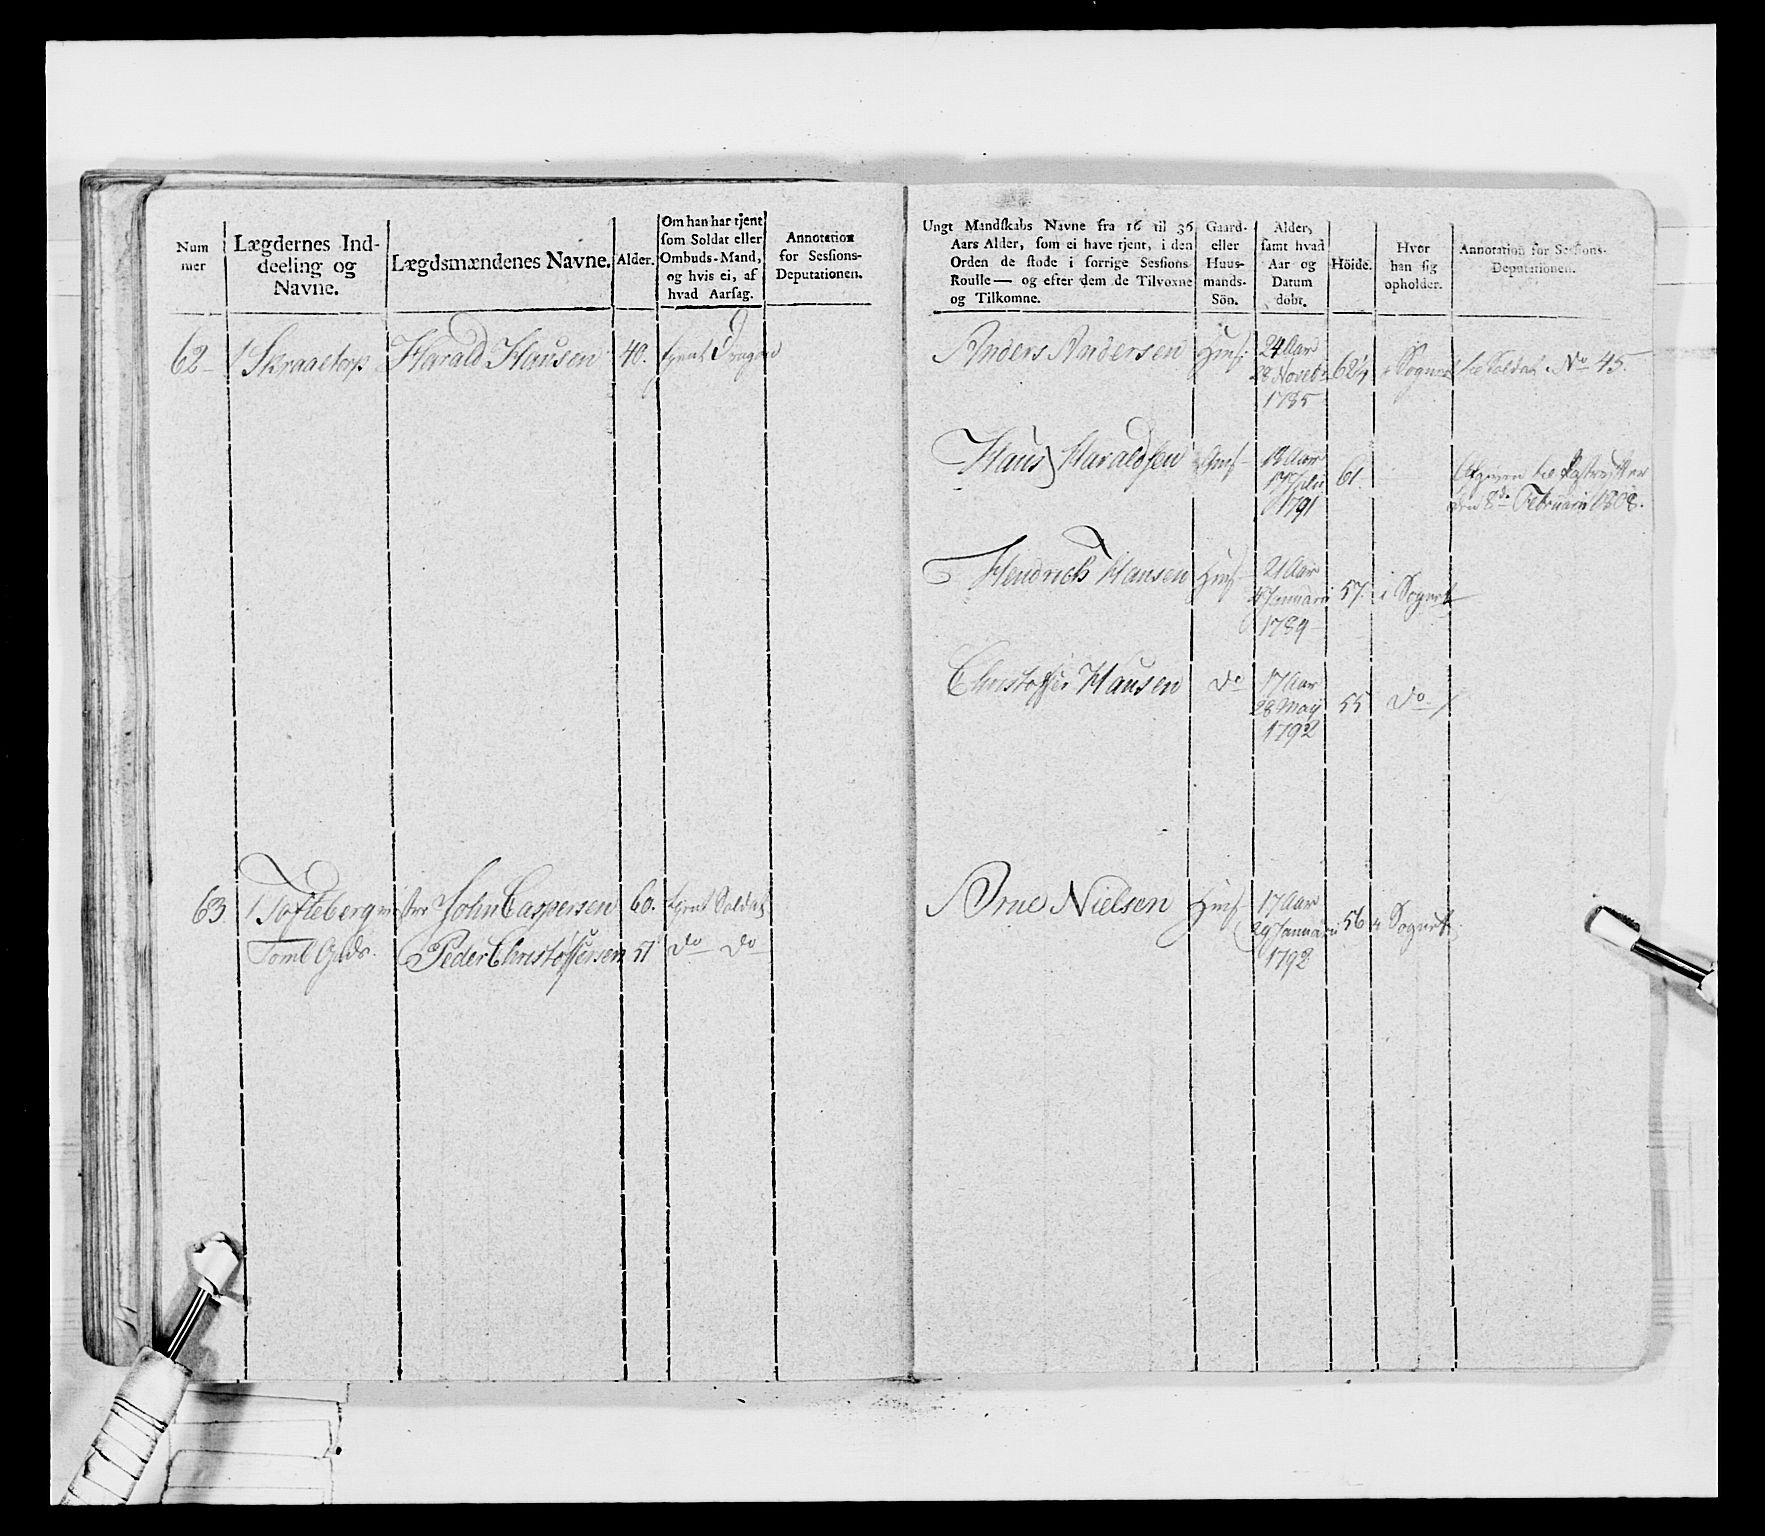 Num
mer
Lægdernes Ind-
deeling og
Navne.
Lægdsmændenes Navne.
Alder.
Om han har tjent
som Soldat eller
Ombuds-Mand,
og hvis ei, af
hvad Aarsag.
Annotation
for Sessions-
Deputationen.
62
1 Skraatorp
Harald Hansen
40.
tjent Dragon
63
1 Tofteberg
John Caspersen
60.
tjent Soldat
Peder Christoffersen
51
do do
Ungt Mandskabs Navne fra 16 til 36
Aars Alder, som ei have tjent, i den
Orden de stode i forrige Sessions-
Roulle — og efter dem de Tilvoxne
og Tilkomne.
Gaard-
eller
Huus-
mands-
Sön.
Alder,
samt hvad
Aar og
Datum
döbt.
Höide.
Hvor
han sig
opholder.
Annotation for Sessions-
Deputationen.
Anders Andersen
24 Aar
28 Novebr
1785
62 1/4
i Sognet
til Soldat No 45.
Hans Haraldsen
1791
61.
Afgiven til
den 8de Februarii 1808.
Hendrich Hansen
21 Aar
Januarii
1789
57.
i Sognet
Christoffer Hansen
do
17 Aar
28 May
1792
55
do
Arne Nielsen
17 Aar
29 Januarii
1792
56
i Sognet